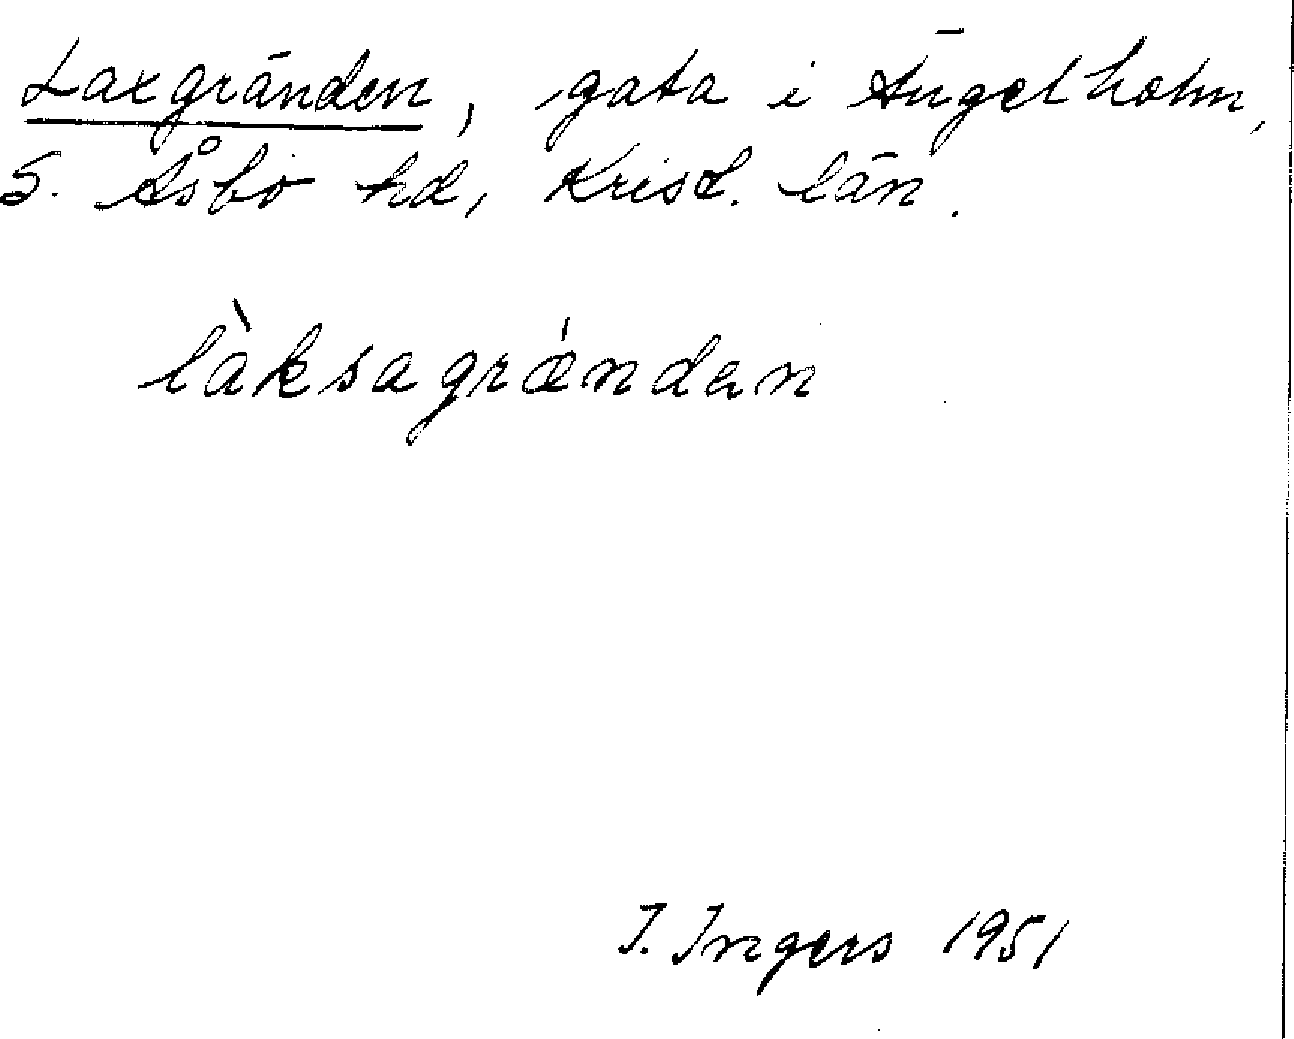 Laxgränden, gata i Ängelholm,
S. Åsbo hd, Krist. län.
làksagrǽndan
I. Ingers 1951